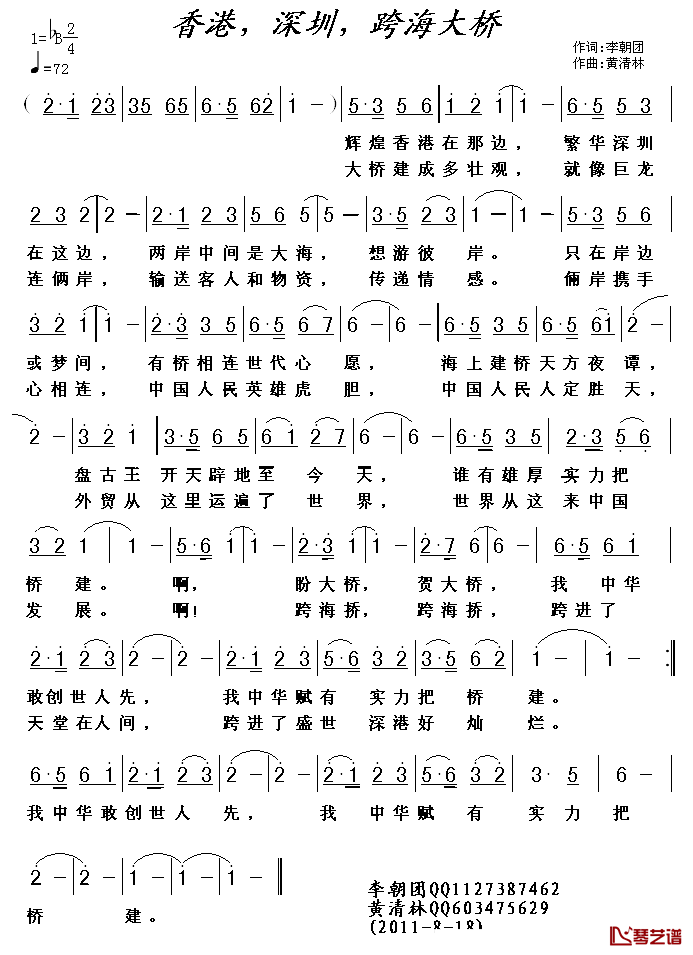 香港，深圳，跨海大桥
1=♭B 2/4
♩=72
作词:李朝团
作曲:黄清林
( 2·1 23 | 35 65 | 6·5 62 | 1 - ) | 5·3 5 6 | 1 2 1 | 1 - | 6·5 5 3
辉煌香港在那边， 繁华深圳
大桥建成多壮观， 就像巨龙
2 3 2 | 2 - | 2·1 2 3 | 5 6 5 | 5 - | 3·5 2 3 | 1 - | 1 - | 5·3 5 6
在这边， 两岸中间是大海， 想游彼岸。 只在岸边
连俩岸， 输送客人和物资， 传递情感。 俩岸携手
3 2 1 | 1 - | 2·3 3 5 | 6·5 6 7 | 6 - | 6 - | 6·5 3 5 | 6·5 61 | 2 -
或梦间， 有桥相连世代心愿， 海上建桥天方夜谭，
心相连， 中国人民英雄虎胆， 中国人民人定胜天，
2 - | 3 2 1 | 3·5 6 5 | 6 1 2 7 | 6 - | 6 - | 6·5 3 5 | 2·3 5 6
盘古王 开天辟地至今天， 谁有雄厚实力把
外贸从 这里运遍了世界， 世界从这来中国
3 2 1 | 1 - | 5·6 1 | 1 - | 2·3 1 | 1 - | 2·7 6 | 6 - | 6·5 6 1
桥建。 啊， 盼大桥， 贺大桥， 我中华
发展。 啊! 跨海桥， 跨海桥， 跨进了
2·1 2 3 | 2 - | 2 - | 2·1 2 3 | 5·6 3 2 | 3·5 6 2 | 1 - | 1 - :|
敢创世人先， 我中华赋有实力把桥建。
天堂在人间， 跨进了盛世深港好灿烂。
6·5 6 1 | 2·1 2 3 | 2 - | 2 - | 2·1 2 3 | 5·6 3 2 | 3· 5 | 6 2
我中华敢创世人先， 我中华赋有实力把
2 - | 2 - | 1 - | 1 - ‖
桥建。
李朝团QQ1127387462
黄清林QQ603475629
(2011-8-18)
琴艺谱